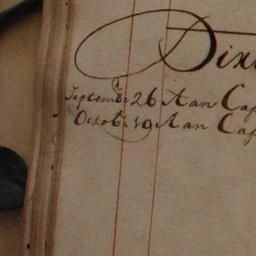 Dix
Septemb: 26 Aan Cas
Octob: 19 Aan Cas